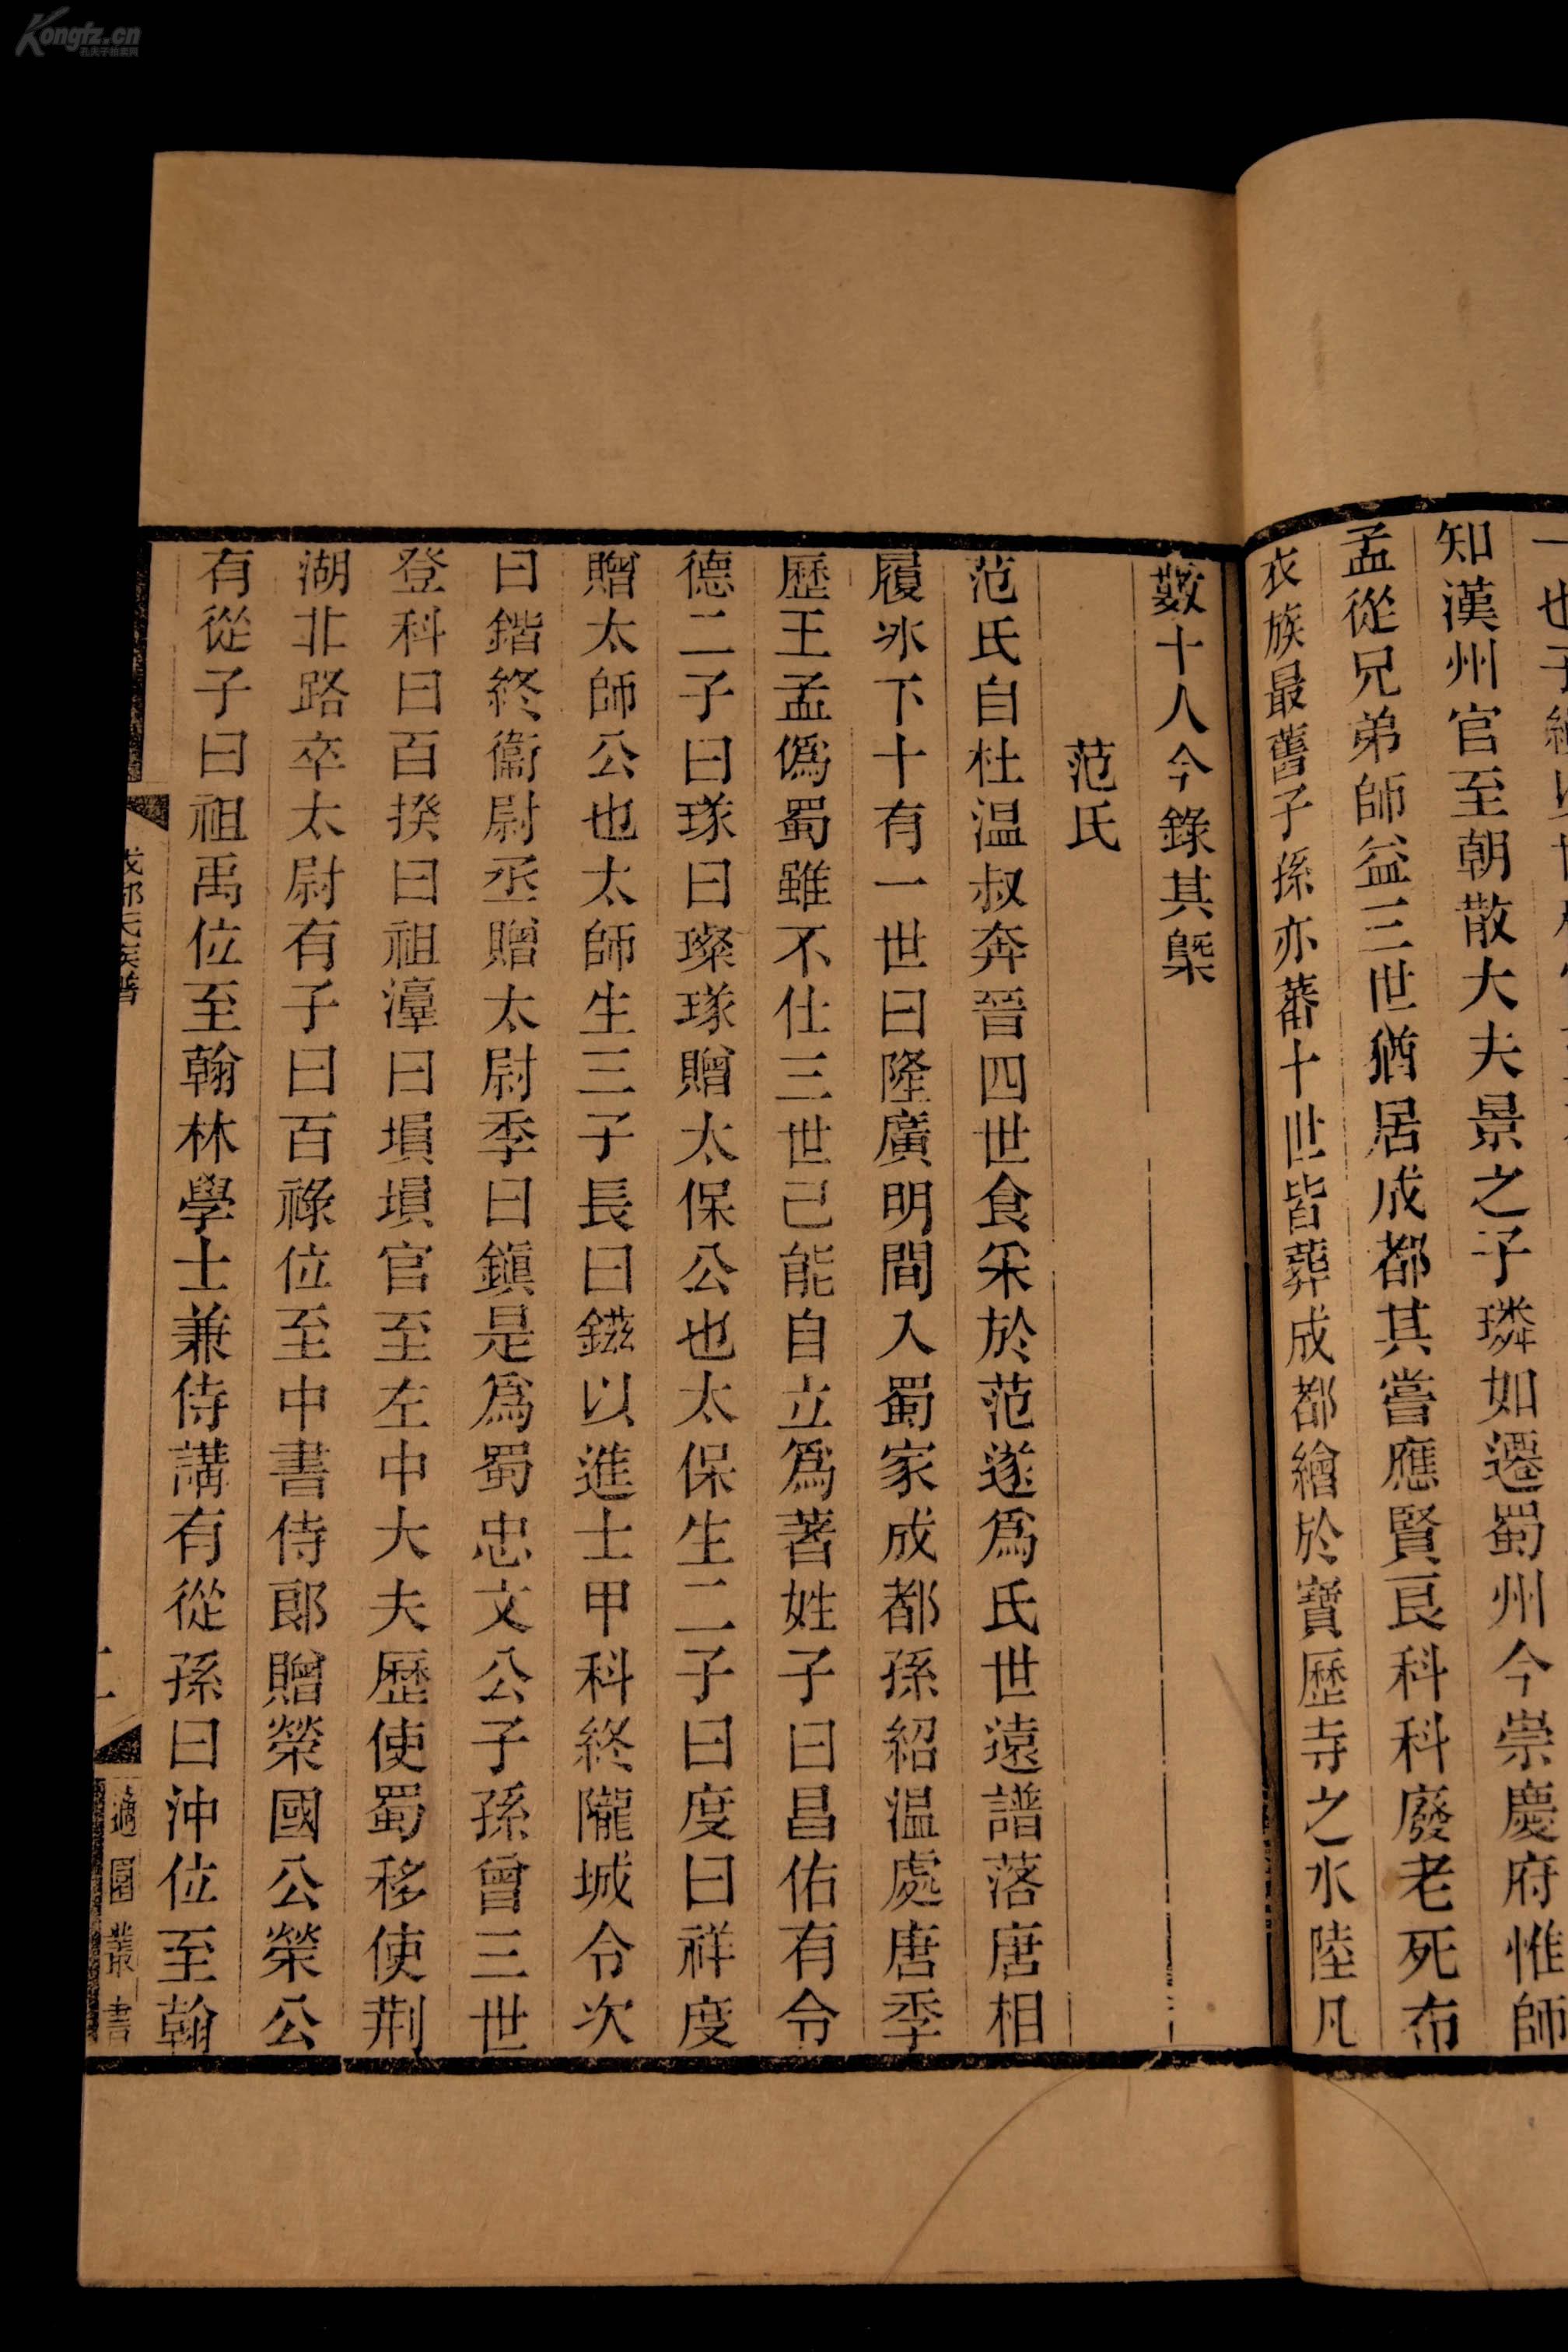 知漢州官至朝散大夫景之子璘如遷蜀州今崇慶府惟師
孟從兄弟師益三世猶居成都其嘗應賢良科科廢老死布
衣族最舊子孫亦蕃十世皆葬成都繪於寶歷寺之水陸凡
數十人今錄其槩
范氏
范氏自杜温叔奔晉四世食采於范遂爲氏世遠譜落唐相
履冰下十有一世曰隆廣明間入蜀家成都孫紹温處唐季
歷王孟僞蜀雖不仕三世已能自立爲著姓子曰昌佑有令
德二子曰璲曰璨璲贈太保公也太保生二子曰度曰祥度
贈太師公也太師生三子長曰鎡以進士甲科終隴城令次
曰鍇終衞尉丞贈太尉季曰鎭是爲蜀忠文公子孫曾三世
登科曰百揆曰祖㵒曰塤塤官至左中大夫歷使蜀移使荆
湖北路卒太尉有子曰百祿位至中書侍郎贈榮國公榮公
有從子曰祖禹位至翰林學士兼侍講有從孫曰沖位至翰
成都氏族譜
二
適園叢書
Kongfz.cn
孔夫子拍卖网